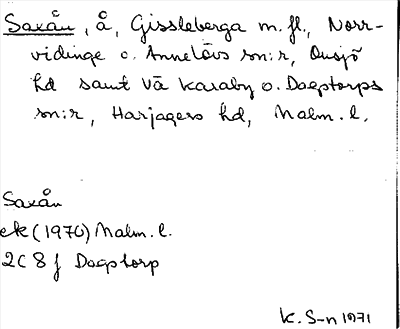 Saxån, å, Gissleberga m. fl., Norr-
vidinge o. Annelövs sn:r, Onsjö
hd samt Vä Karaby o. Dagstorps
sn:r, Harjagers hd, Malm. l.
Saxån
ek (1970) Malm. l.
2C 8f Dagstorp
K. S-n 1971